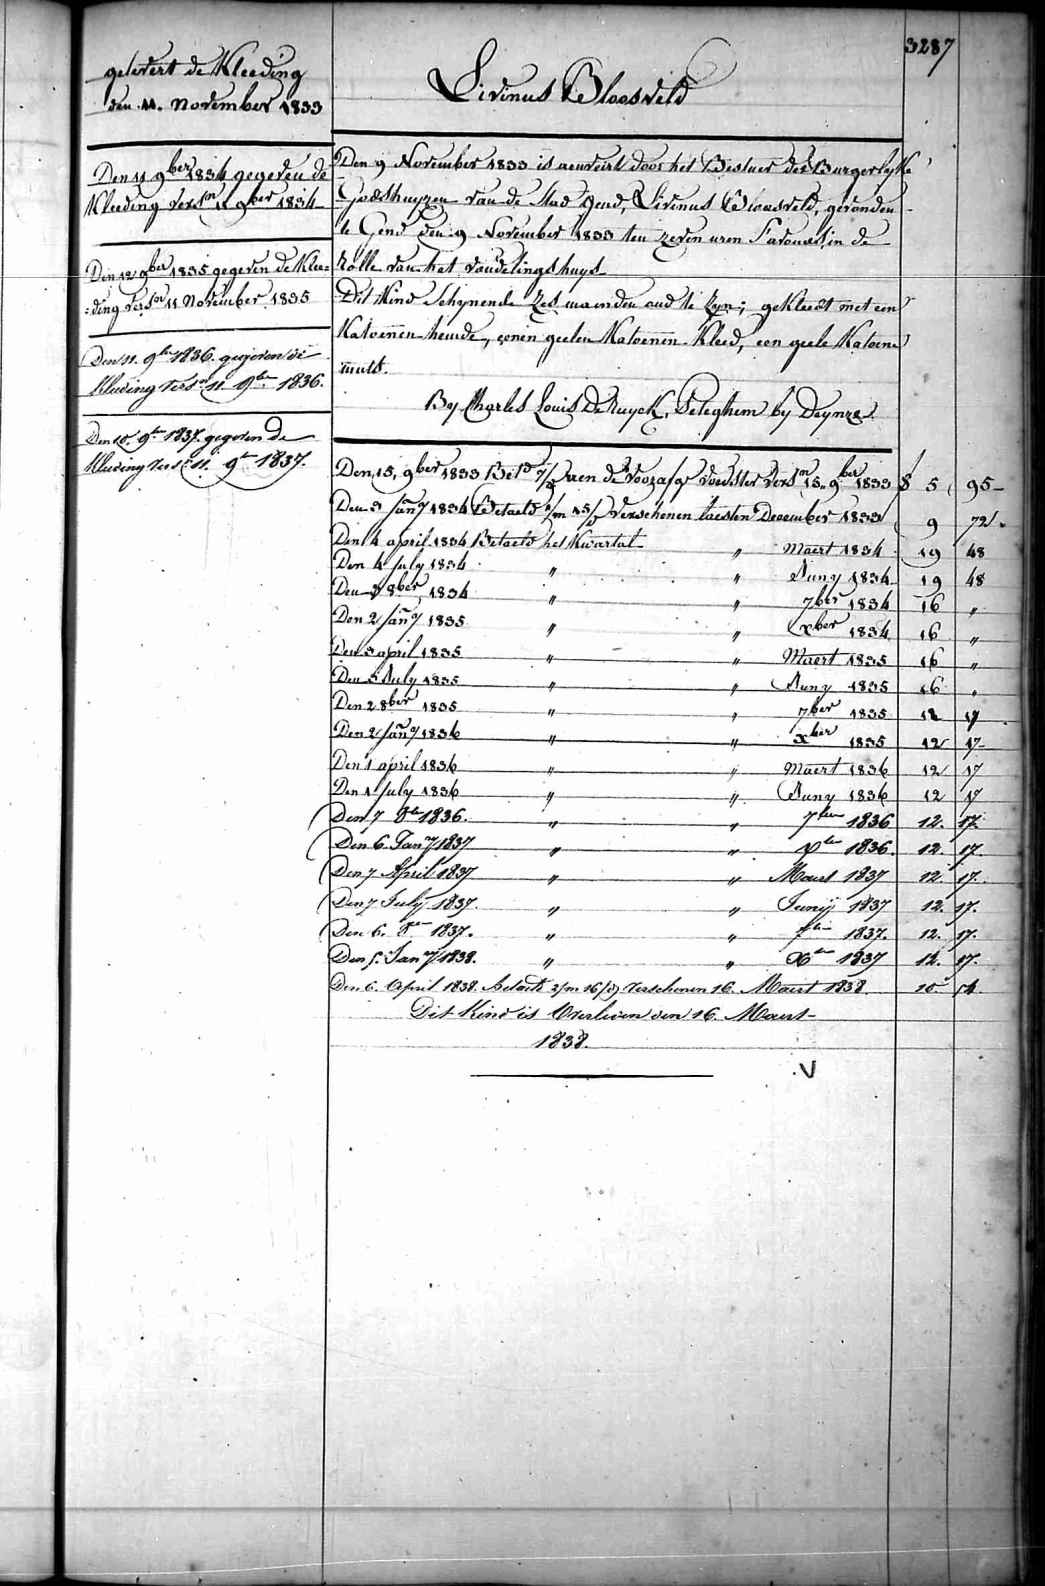 3287
gelevert de Kleeding
den 11. november 1833
Livinus Bloosveld
Den 11 9ber 1834 gegeven de
Kleeding versn 11 9ber 1834
Den 12 9ber 1835 gegeven de Klee=
=ding versn 11 November 1835
Den 11. 9br 1836. gegeven de
Kleeding versn 11. 9br 1836.
Den 10. 9br 1837. gegeven de
Kleeding vers 11. 9br 1837.
Den 9 November 1833 is aenveirt door het Bestuer der Burgerlyke
Godshuyzen van de Stad Gend, Livinus Bloosveld, gevonden
te Gend den 9 November 1833 ten zeven uren s'avonds in de
rolle van het vondelingshuys
Dit Kind schynende zes maenden oud te zyn; gekleedt met een
Katoenen hemde, eenen geelen Katoenen Kleed, een geele Katoene
muts.
By Charles Louis De Ruyck, Peteghem by Deynze
Den 15, 9ber 1833 Betd aen de voorzege voedster versn 15 9ber 1833 5 95
Den 3 Jany 1834 Betaeld 1/m 15/d verschenen laesten December 1833 9 72
Den 4 april 1834 Betaeld het Kwartal " Maert 1834 19 48
Den 4 July 1834 " " Juny 1834 19 48
Den 3 8ber 1834 " " 7ber 1834 16 "
Den 2 Jany 1835 " " xber 1834 16 "
Den 3 april 1835 " " Maert 1835 16 "
Den 3 July 1835 " " Juny 1835 16 "
Den 2 8ber 1835 " " 7ber 1835 12 17
Den 2 Jany 1836 " " xber 1835 12 17
Den 1 april 1836 " " Maert 1836 12 17
Den 1 July 1836 " " Juny 1836 12 17
Den 7 8br 1836. " " 7ber 1836 12. 17.
Den 6. Jany 1837 " " Xbr 1836. 12. 17.
Den 7 April 1837 " " Maert 1837 12. 17.
Den 7 July 1837. " " Junÿ 1837 12. 17.
Den 6. 8br 1837. " " 7br 1837. 12. 17.
Den 5. Jany 1838. " " Xbr 1837 12. 17.
Den 6. April 1838. betaeld 2/m 16/d verschenen 16. Maert 1838 10 14
Dit Kind is Overleden den 16. Maert
1838.
V